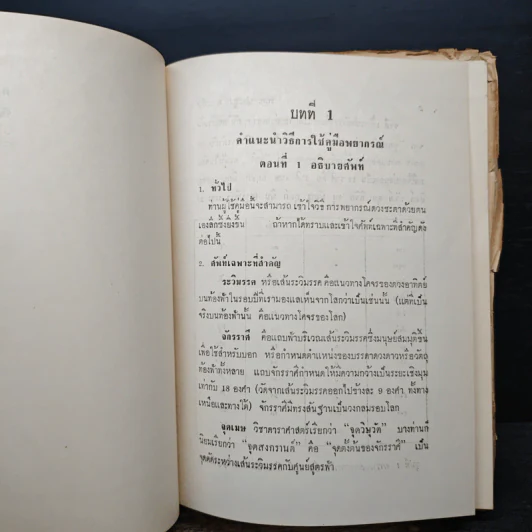 บทที่ 1
คำแนะนำวิธีการใช้คู่มือพยากรณ์
ตอนที่ 1 อธิบายศัพท์
1. ทั่วไป
ท่านผู้ใช้คู่มือนี้จะสามารถ เข้าใจวิธี การพยากรณ์ดวงชะตาด้วยตน
เองลึกซึ้งยิ่งขึ้น ถ้าหากได้ทราบและเข้าใจศัพท์เฉพาะที่สำคัญดัง
ต่อไปนี้
2. ศัพท์เฉพาะที่สำคัญ
ระวิมรรค หรือเส้นระวิมรรค คือแนวทางโคจรของดวงอาทิตย์
บนท้องฟ้าในรอบปีที่เรามองแลเห็นจากโลกว่าเป็นเช่นนั้น (แต่ที่เป็น
จริงบนท้องฟ้านั้น คือแนวทางโคจรของโลก)
จักรราศี คือแถบฟ้าบริเวณเส้นระวิมรรคซึ่งมนุษย์สมมุติขึ้น
เพื่อใช้สำหรับบอก หรือกำหนดตำแหน่งของบรรดาดวงดาวหรือวัตถุ
ท้องฟ้าทั้งหลาย แถบจักรราศีกำหนดให้มีความกว้างเป็นระยะเชิงมุม
เท่ากับ 18 องศา (วัดจากเส้นระวิมรรคออกไปข้างละ 9 องศา ทั้งทาง
เหนือและทางใต้) จักรราศีมีทรงสัณฐานเป็นวงกลมรอบโลก
จุดเมษ วิชาดาราศาสตร์เรียกว่า "จุดวิษุวัต" บางท่านก็
นิยมเรียกว่า "จุดสงกรานต์" คือ "จุดตั้งต้นของจักรราศี" เป็น
จุดตัดระหว่างเส้นระวิมรรคกับศูนย์สูตรฟ้า